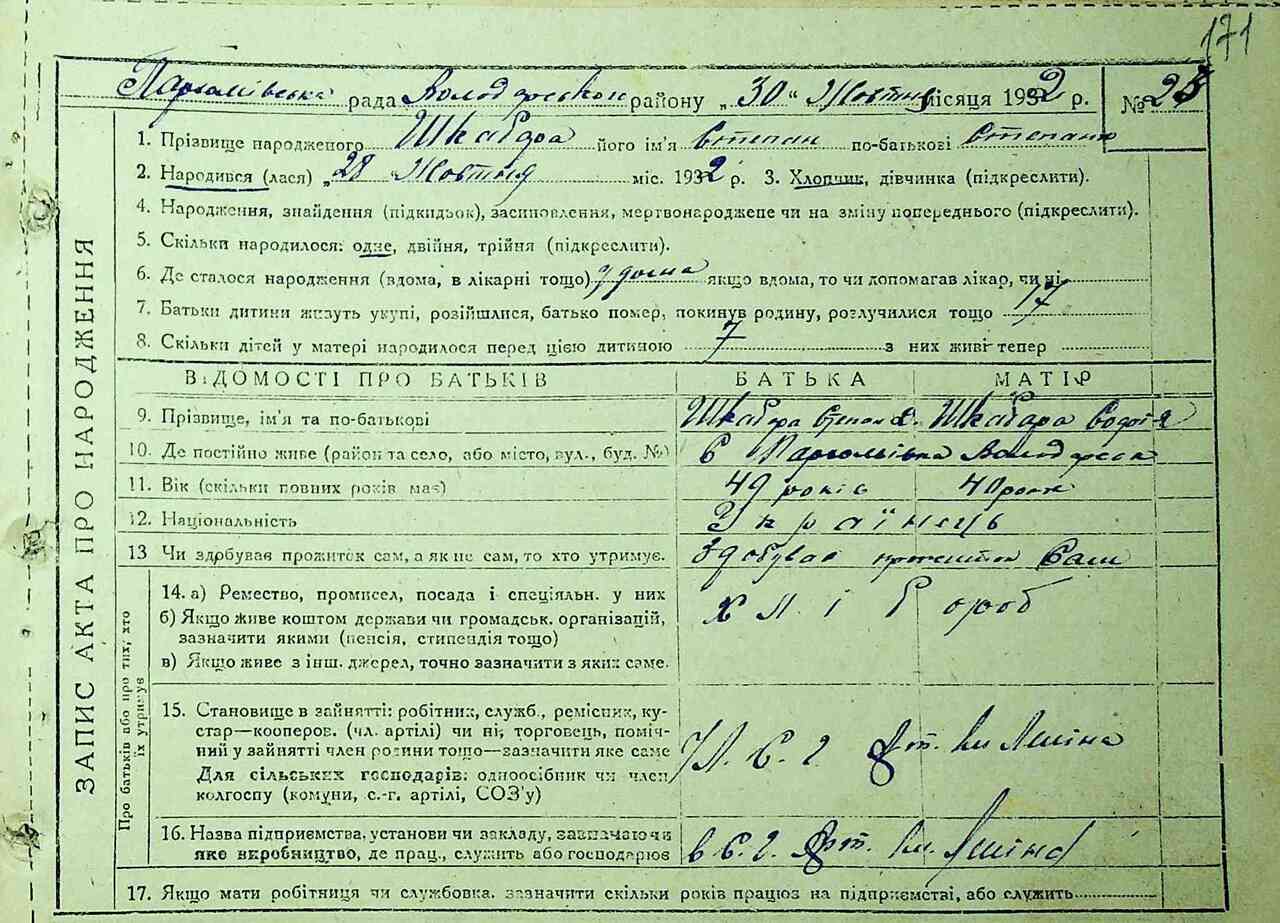 171
Пархомівська рада Володарськ району „30“ Жовтня місяця 1932 р. № 23
1. Прізвище народженого Шкабура його ім'я Степан по-батькові Степанов
2. Народився (лася) „28 Жовтня міс. 1932 р. 3. Хлопчик, дівчинка (підкреслити).
4. Народження, знайдення (підкидьок), засиновлення, мертвонароджене чи на зміну попереднього (підкреслити).
5. Скільки народилося: одне, двійня, трійня (підкреслити).
6. Де сталося народження (вдома, в лікарні тощо) удома якщо вдома, то чи допомагав лікар, чи ні
7. Батьки дитини живуть укупі, розійшлися, батько помер, покинув родину, розлучилися тощо
8. Скільки дітей у матері народилося перед цією дитиною 7 з них живі тепер
ВІДОМОСТІ ПРО БАТЬКІВ БАТЬКА МАТІР
9. Прізвище, ім'я та по-батькові Степан Софія
10. Де постійно живе (район та село, або місто, вул., буд. №) С Пархомівка Володарськ
11. Вік (скільки повних років має) 49 років 40 рок
12. Національність Українець
13 Чи здобував прожиток сам, а як не сам, то хто утримує. Здобував прожиток Сам
14. а) Ремество, промисел, посада і спеціяльн. у них Хлібороб
б) Якщо живе коштом держави чи громадськ. організацій,
зазначити якими (пенсія, стипендія тощо)
в) Якщо живе з інш. джерел, точно зазначити з яких саме.
15. Становище в зайнятті: робітник, служб., ремісник, ку-
стар—кооперов. (чл. артілі) чи ні, торговець, поміч-
ний у зайнятті член родини тощо—зазначити яке саме
Для сільських господарів: одноосібник чи член
колгоспу (комуни, с.-г. артілі, СОЗ'у)
Чл. С. г. Арт. ім Леніна
16. Назва підприємства, установи чи закладу, зазначаючи
яке виробництво, де прац., служить або господарює в С. г. Арт. ім. Леніна
17. Якщо мати робітниця чи службовка, зазначити скільки років працює на підприємстві, або служить
ЗАПИС АКТА ПРО НАРОДЖЕННЯ
Про батьків або про тих, хто
їх утримує